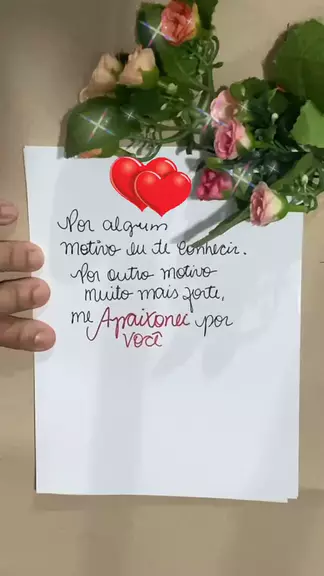 Por algum
motivo eu te conheci.
Por outro motivo
muito mais forte,
me Apaixonei por
você